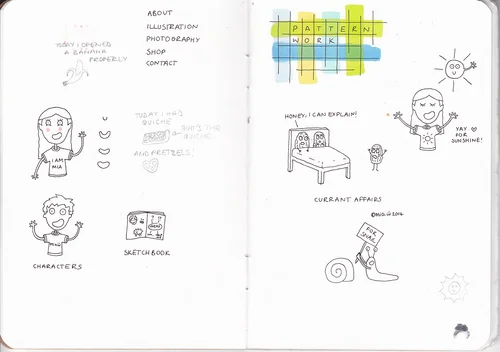 ABOUT
ILLUSTRATION
PHOTOGRAPHY
SHOP
CONTACT
TODAY I OPENED
A BANANA
PROPERLY
TODAY I HAD
QUICHE
AND PRETZELS!
I AM
MIA
CHARACTERS
SKETCHBOOK
PATTERN
WORK
HONEY, I CAN EXPLAIN!
YAY
FOR
SUNSHINE!
CURRANT AFFAIRS
FOR